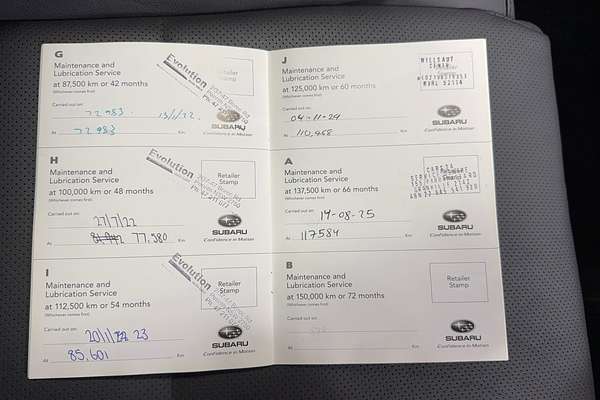 G
Maintenance and
Lubrication Service
at 87,500 km or 42 months
(Whichever comes first)
Evolution
Retailer
Stamp
Carried out on:
72,983
13/1/22
At
72,983
Km
SUBARU
Confidence in Motion
H
Maintenance and
Lubrication Service
at 100,000 km or 48 months
(Whichever comes first)
Evolution
Retailer
Stamp
Carried out on:
27/7/22
At
77,380
Km
SUBARU
Confidence in Motion
I
Maintenance and
Lubrication Service
at 112,500 km or 54 months
(Whichever comes first)
Evolution
Retailer
Stamp
Carried out on:
20/11/22 23
At
85,601
Km
SUBARU
Confidence in Motion
J
Maintenance and
Lubrication Service
at 125,000 km or 60 months
(Whichever comes first)
MVRL 52114
Carried out on:
04-11-24
At
110,468
Km
SUBARU
Confidence in Motion
A
Maintenance and
Lubrication Service
at 137,500 km or 66 months
(Whichever comes first)
Carried out on:
19-08-25
At
117584
Km
SUBARU
Confidence in Motion
B
Maintenance and
Lubrication Service
at 150,000 km or 72 months
(Whichever comes first)
Retailer
Stamp
Carried out on:
At
Km
SUBARU
Confidence in Motion